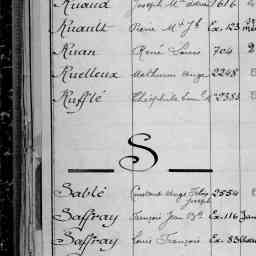 Ruaud Joseph Mie 1616
Ruault Pierre Mie Jh Ex. 123
Ruan René Louis 704 2
Ruelleux Mathurin Ange 2248
Rufflé Théophile 2383
S
Sablé Constant Ange Félix 2554
Joseph
Saffray François Jean Bte Ex. 116 Jan
Saffray Louis François Ex. 83